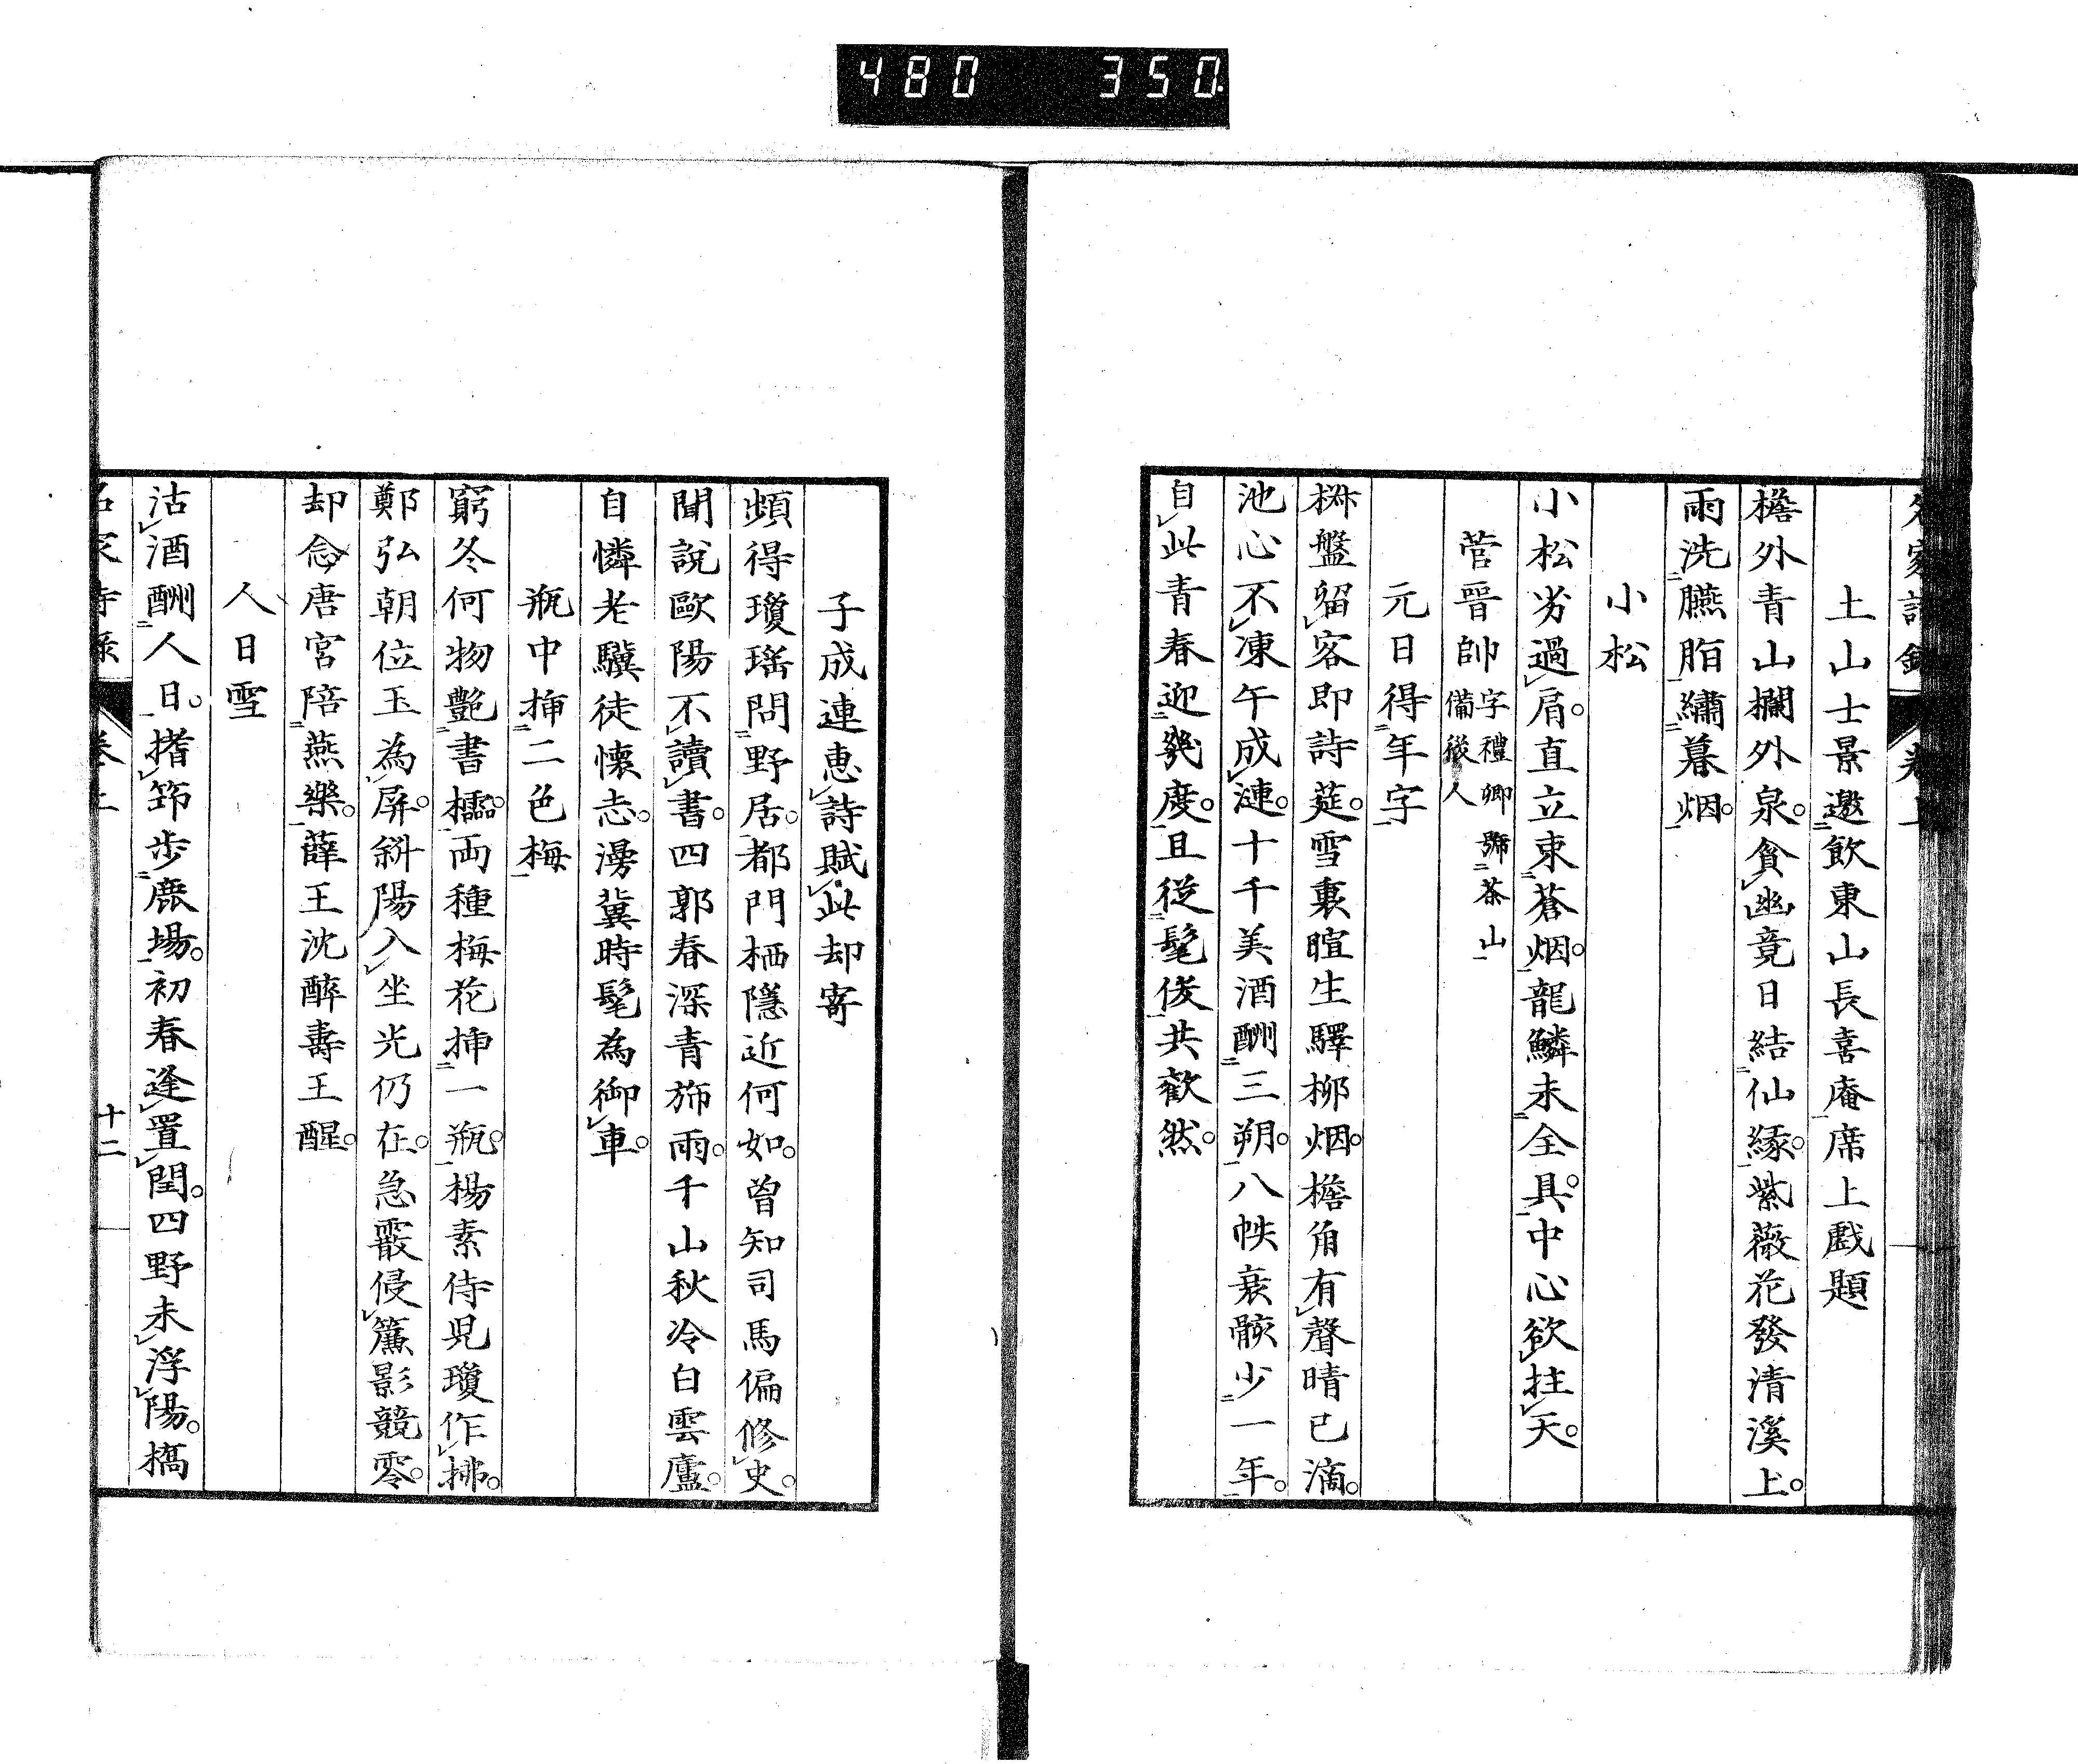 480 350.
名家詩錄 卷上
土山士景邀飲東山長喜庵席上戲題
檐外青山欄外泉。貪幽竟日結仙緣。紫薇花發清溪上。
雨洗臙脂繡暮烟。
小松
小松劣過肩。直立束蒼烟。龍鱗未全具。中心欲拄天。
菅晉帥 字禮卿號茶山備後人
元日得年字
椒盤留客即詩莚。雪裏暄生驛柳烟。檐角有聲晴已滴。
池心不凍午成漣。十千美酒酬三朔。八帙衰骸少一年。
自此青春迎幾度。且從髦俊共歡然。
子成連惠詩賦此却寄
頻得瓊瑤問野居。都門栖隱近何如。曾知司馬偏修史。
聞說歐陽不讀書。四郭春深青旆雨。千山秋冷白雲廬。
自憐老驥徒懷志。漫冀時髦為御車。
瓶中挿二色梅
窮冬何物艷書櫺。両種梅花挿一瓶。楊素侍児瓊作拂。
鄭弘朝位玉為屏。斜陽入坐光仍在。急霰侵簾影競零。
却念唐宮陪燕樂。薛王沈醉壽王醒。
人日雪
沽酒酬人日。撘筇步鹿場。初春逢置閏。四野未浮陽。橋
名家詩錄 卷上 十二